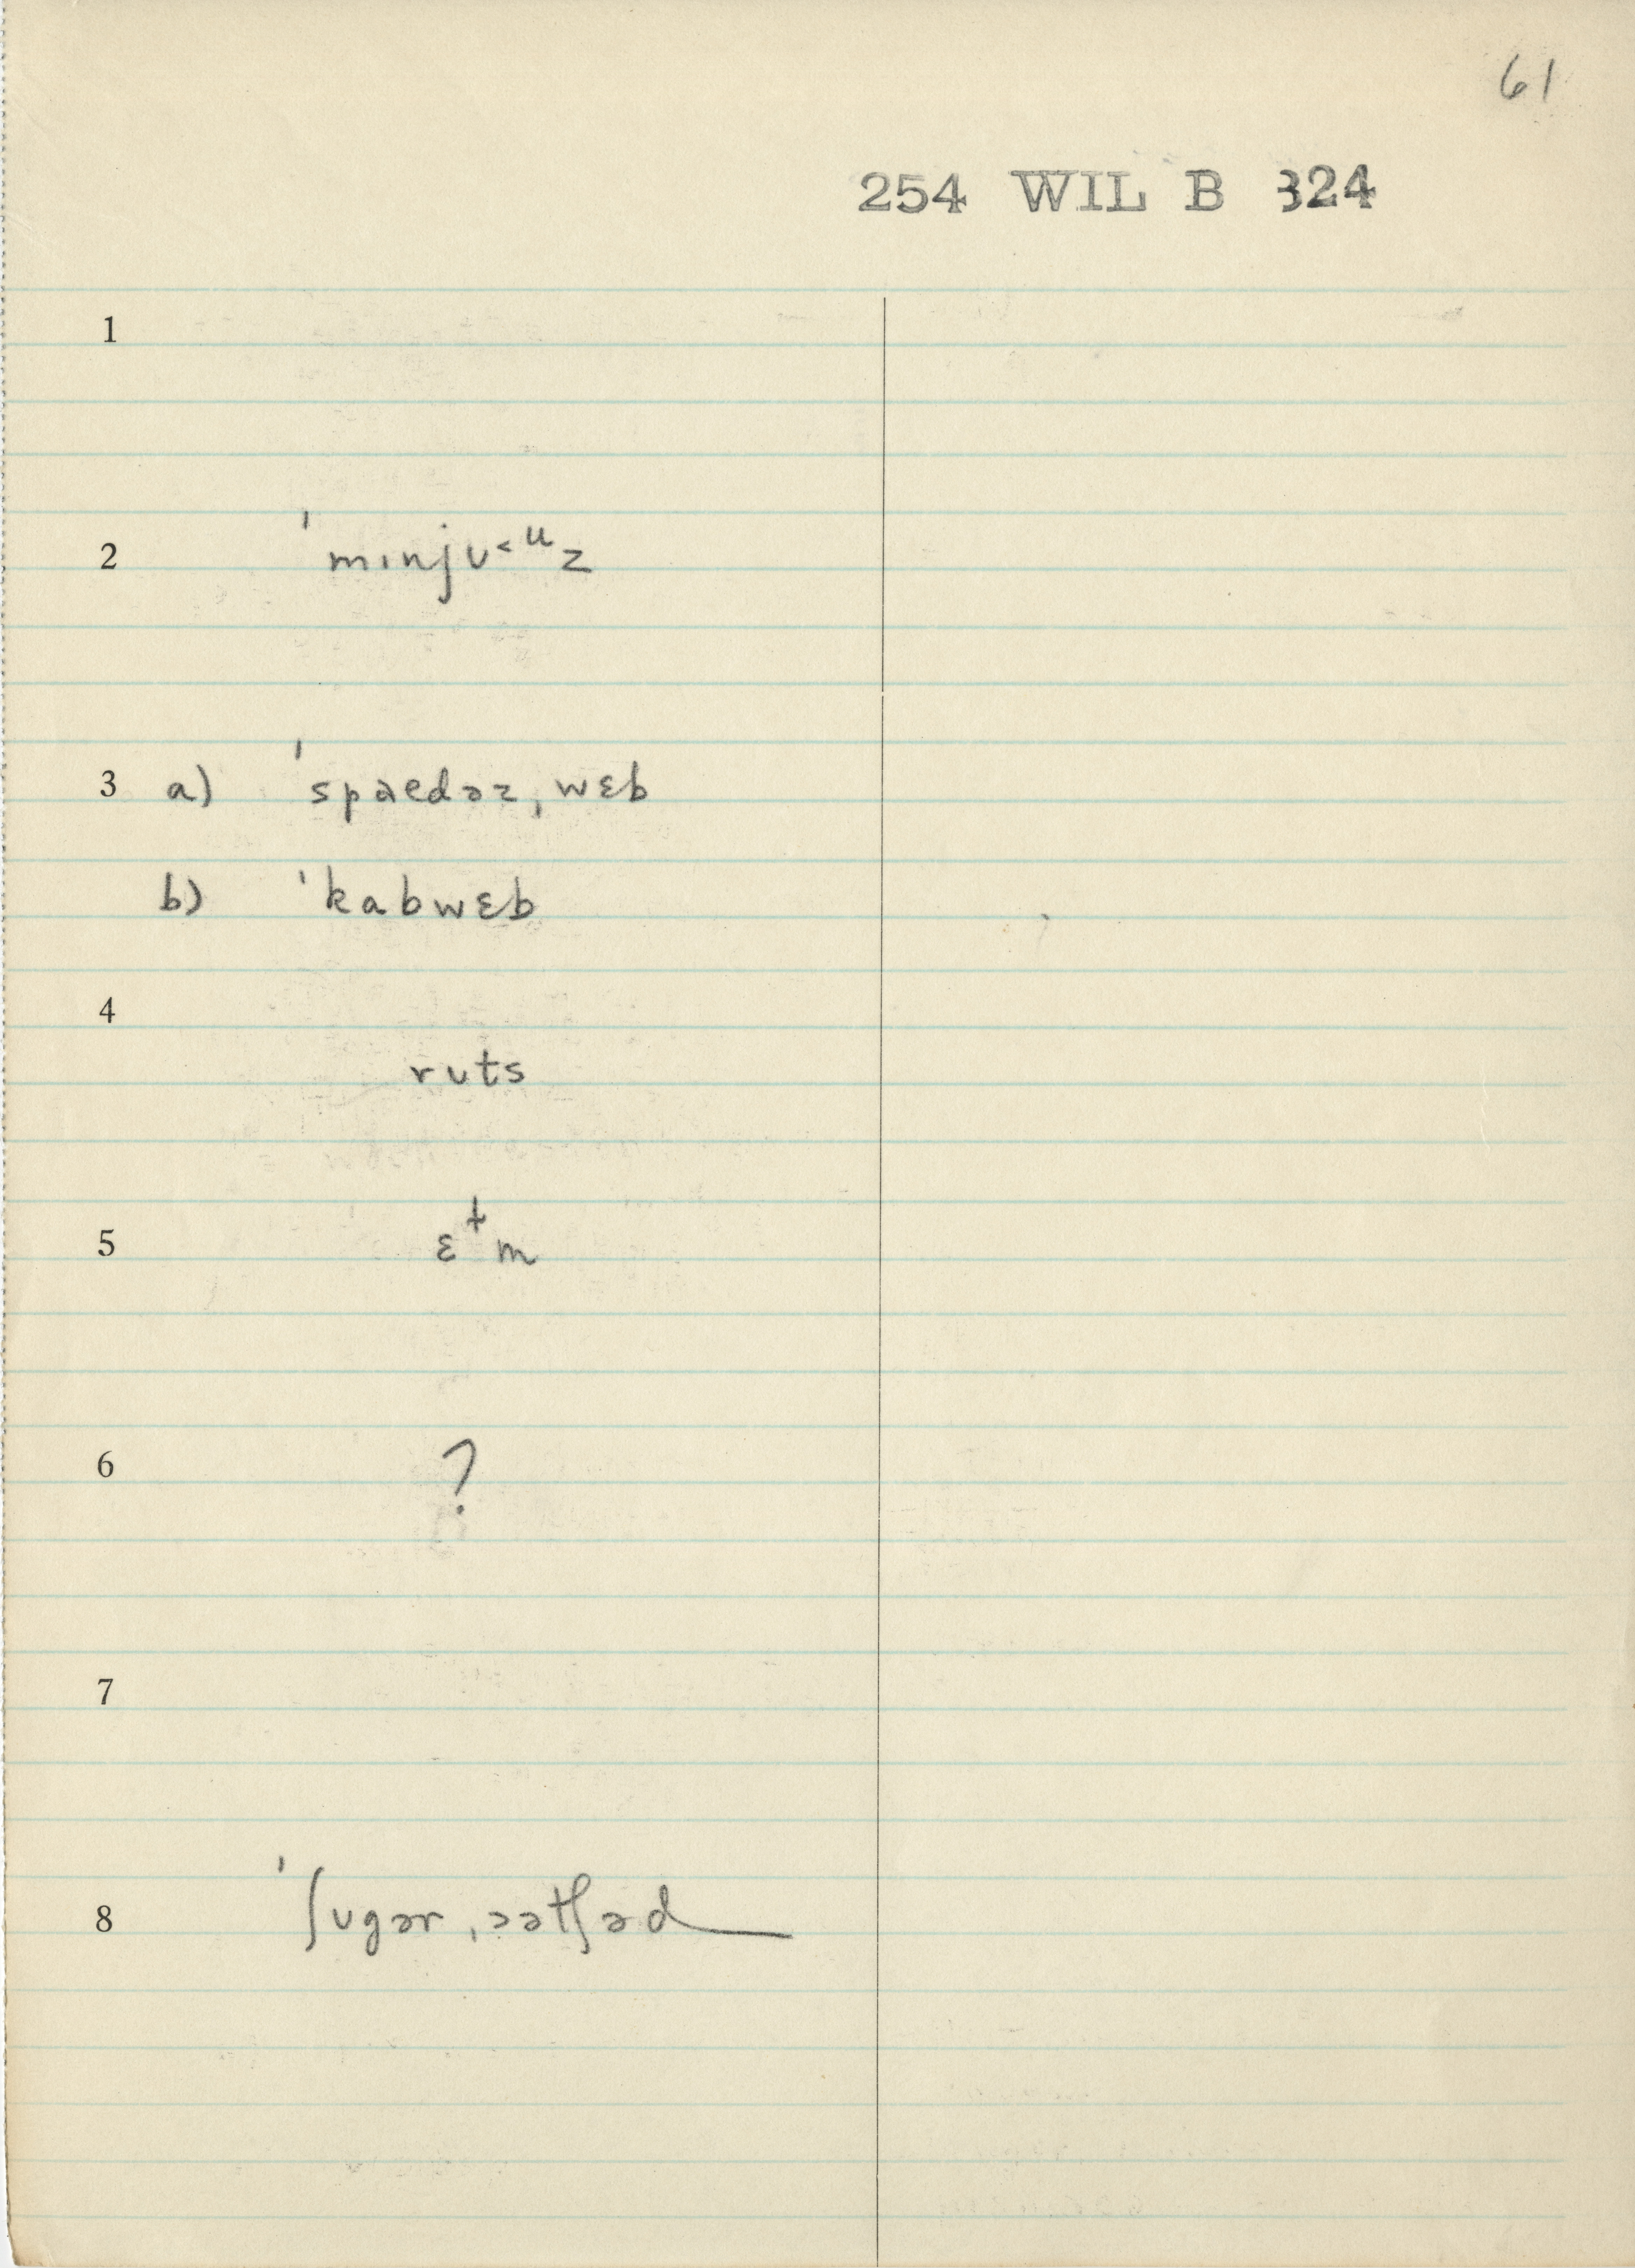 61
254 WIL B 324
1
2 ˈmɪnjʊ˂ᵘz
3 a) ˈspaedəz ˌwɛb
b) ˈkabwɛb
4
ruts
5 ɛɫm
6 ?
7
8 ˈʃugər ˌɔətʃəd